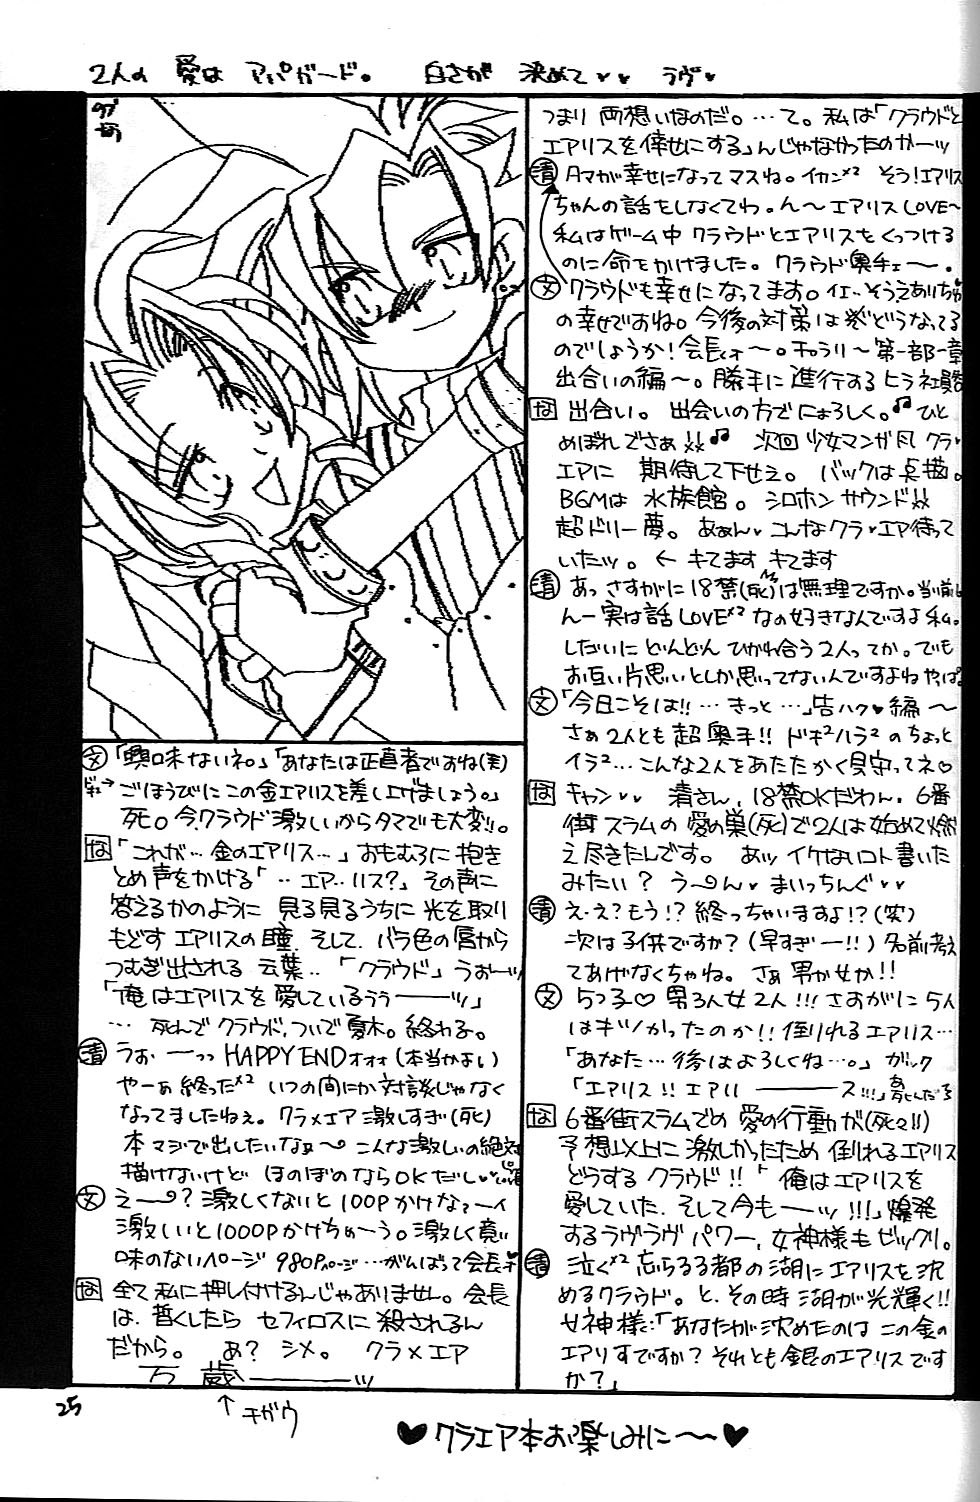 2人の 愛は アパガード。 白さが 決めて♥♥ ラヴ♥
つまり 両想いなのだ。…て。私は「クラウドと
エアリスを倖せにする」んじゃなかったのかーッ
清 タマが幸せになってマスね。イカン×2 そう!エアリス
ちゃんの話をしなくてわ。ん〜エアリスLOVE〜
私はゲーム中 クラウドとエアリスをくっつける
のに命をかけました。クラウド奥手ェ〜。
文 クラウドも幸せになってます。イエ‥そうえありちゃ
の幸せですね。今後の対策は どうなってる
のでしょうか!会長ォ〜。チャラリ〜第一部一章
出合いの編〜。勝手に進行するヒラ社員
な 出合い。出会いの方でにょろしく。♫ ひと
めぼれでさぁ♫ 次回 少女マンガ風 クラ・
エアに 期待して下せぇ。 バックは点描。
BGMは 水族館。 シロホン サウンド!!
超ドリー夢。 あぁん♥コんなクラ・エア待って
いたッ。← キてます キてます
清 あっ さすがに18禁(死)は無理ですか。当り前
んー実は話LOVE×2なの好きなんですよ私。
しだいにどんどん ひかれ合う2人ってか。でも
お互い片思いとしか思ってないんですよねやっぱ
文 「今日こそは!!…きっと…」告ハク♥編〜
さぁ2人とも超奥手!! ドキ2ハラ2のちょっと
イラ2…こんな2人をあたたかく見守ってネ♡
な キャン♥♥ 清さん、18禁OKだわん。6番
街スラムの 愛の巣(死)で2人は始めて燃
え尽きたんです。 あッイケないコト書いた
みたい? う〜ん♥まいっちんぐ♥♥
清 え・え?もう!? 終っちゃいますよ!?(笑)
次は子供ですか?(早すぎー!!)名前考え
てあげなくちゃね。さぁ男か女か!!
文 5つ子♡ 男3人女2人!!!さすがに5人
はキツかったのか!! 倒れるエアリス…
「あなた…後はよろしくね…。」ガック
「エアリス!!エアリ――――ス!!!」
な 6番街スラムでの 愛の行動が(死々!!)
予想以上に激しかったため 倒れるエアリス
どうする クラウド!!「俺はエアリスを
愛していた。そして今もーッ!!!」爆発
するラヴラヴ パワー、女神様もビックリ。
清 泣く×2 忘らるる都の湖にエアリスを沈
めるクラウド。と、その時 湖が光輝く!!
女神様:「あなたが沈めたのは この金の
エアリすですか? それとも銀のエアリスです
か?」
文 「興味ないネ。」「あなたは正直者ですね(実)
ごほうびに この金エアリスを差し上げましょう。」
死。今クラウド激しいからタマでも大変!!。
な 「これが…金のエアリス…」おもむろに 抱き
とめ声をかける「‥エア‥リス?」その声に
答えるかのように 見る見るうちに 光を取り
もどす エアリスの瞳。そして、バラ色の唇から
つむぎ出される 言葉‥「クラウド」うぉーッ
「俺はエアリスを愛しているぅぅ――ッ」
… 死んで クラウド、ついで夏木。終わる。
清 うぉーっっ HAPPY ENDォォォ(本当かよい)
やーぁ終った×2 いつの間にか対談じゃなく
なってましたねぇ。クラ×エア激しすぎ(死)
本マジで出したいなぁ〜 こんな激しいの絶対
描けないけど ほのぼのならOKだし♥♥
文 え〜?激しくないと100Pかけなァーイ
激しいと1000Pかけちゃ〜う。激しく意
味のないページ 980Pページ…がんばって会長
な 全て私に押し付けるんじゃありません。会長
は、暫くしたら セフィロスに 殺されるん
だから。 ぁ? シメ。 クラ×エア
万歳――――ッ
↑チガウ
25
♥クラエア本お楽しみに〜〜♥